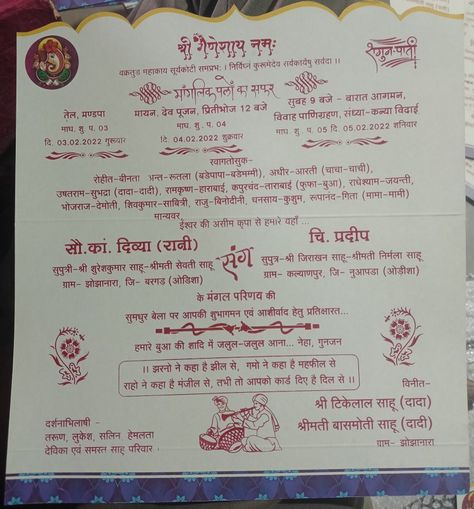 श्री गणेशाय नमः
शगुन-पाती
वक्रतुण्ड महाकाय सूर्यकोटी समप्रभः । निर्विघ्नं कुरूमेदेव सर्वकार्येषु सर्वदा ।।
माँगलिक पलों का सफर
तेल, मण्डपा
माघ. शु. प. 03
दि. 03.02.2022 गुरूवार
मायन, देव पूजन, प्रितीभोज 12 बजे
माघ. शु. प. 04
दि. 04.02.2022 शुक्रवार
सुबह 9 बजे - बारात आगमन,
विवाह पाणिग्रहण, संध्या-कन्या विदाई
माघ. शु. प. 05 दि. 05.02.2022 शनिवार
स्वागतोत्सुक-
रोहीत-बीनता अन्त-रूतला (बडेपापा-बडेमम्मी), अधीर-आरती (चाचा-चाची),
उषतराम-सुभद्रा (दादा-दादी), रामकृष्ण-हाराबाई, कपुरचंद-ताराबाई (फुफा-बुआ), राधेश्याम-जयन्ती,
भोजराज-देमोती, शिवकुमार-सावित्रि, राजु-बिनोदीनी, घनसाय-कुशुम, रूपानंद-गिता (मामा-मामी)
मान्यवर,
ईश्वर की असीम कृपा से हमारे यहाँ ...
सौ.कां. दिव्या (रानी)
सुपुत्री-श्री शुरेशकुमार साहू-श्रीमती सेवती साहू
ग्राम- झोझानारा, जि- बरगड (ओडिशा)
संग
चि. प्रदीप
सुपुत्र-श्री जिराखन साहू-श्रीमती निर्मला साहू
ग्राम- कल्याणपुर, जि- नुआपडा (ओड़ीशा)
के मंगल परिणय की
सुमधुर बेला पर आपकी शुभागमन एवं आशीर्वाद हेतु प्रतिक्षारत...
हमारे बुआ की शादि में जलुल-जलुल आना... नेहा, गुनजन
।। झरनो ने कहा है झील से, गमो ने कहा है महफील से
राहो ने कहा है मंजील से, तभी तो आपको कार्ड दिए है दिल से ।।
दर्शनाभिलाषी -
तरूण, लुकेश, सलिन हेमलता
देविका एवं समस्त साहू परिवार
विनीत-
श्री टिकेलाल साहू (दादा)
श्रीमती बासमोती साहू (दादी)
ग्राम- झोझानारा